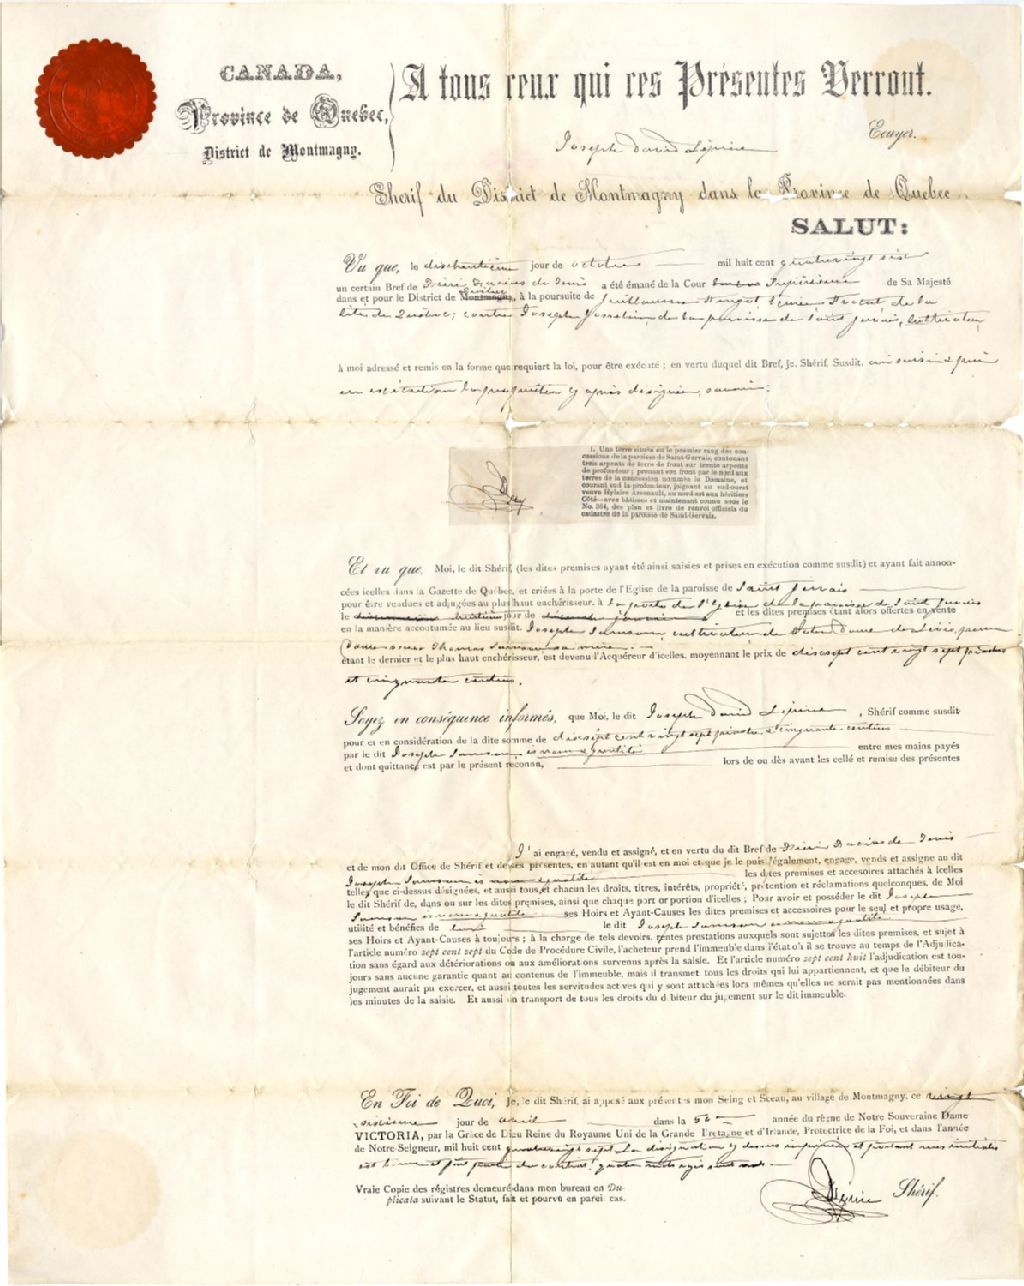 CANADA,
Province de Quebec,
District de Montmagny.
A tous ceux qui ces Présentes Verront.
Joseph David Lépine
Ecuyer.
Sherif du District de Montmagny dans la Province de Quebec.
SALUT:
Vu que, le dixhuitième jour de octobre mil huit cent quatrevingt six
un certain Bref de de Terris a été émané de la Cour Supérieure de Sa Majesté
dans et pour le District de Montmagny, à la poursuite de Guillaume avocat de la
cité de Québec; contre Joseph Gosselin, de la paroisse de Saint Gervais, cultivateur,
à moi adressé et remis en la forme que requiert la loi, pour être exécuté; en vertu duquel dit Bref, je, Shérif, Susdit, ai saisi et pris
en exécution la propriété ci après désignée, savoir:
1. Une terre située en le premier rang des con-
cessions de la paroisse de Saint-Gervais, contenant
trois arpents de terre de front sur trente arpents
de profondeur; prenant son front par le nord aux
terres de la concession nommée la Domaine, et
courant sud la profondeur, joignant au sud-ouest
veuve Hylaire Arsenault, au nord-est aux héritiers
Côté—avec bâtisses et maintenant connue sous le
No. 364, des plan et livre de renvoi officiels du
cadastre de la paroisse de Saint-Gervais.
Et vu que, Moi, le dit Shérif, (les dites premises ayant été ainsi saisies et prises en exécution comme susdit) et ayant fait annon-
cées icelles dans la Gazette de Québec, et criées à la porte de l'Eglise de la paroisse de Saint Gervais
pour être vendues et adjugées au plus haut enchérisseur, à la porte de l'Eglise de la paroisse de Saint Gervais
le jour de et les dites premises étant alors offertes en vente
en la manière accoutumée au lieu susdit. Joseph Samson, cultivateur de Notre Dame de Lévis,
Thomas Samson
étant le dernier et le plus haut enchérisseur, est devenu l'Acquéreur d'icelles, moyennant le prix de dixsept cent vingt sept piastres
et cinquante centins.
Soyez en conséquence informés, que Moi, le dit Joseph David Lépine, Shérif comme susdit
pour et en considération de la dite somme de dixsept cent vingt sept piastres et cinquante centins
par le dit Joseph Samson ès nom et qualité entre mes mains payés
et dont quittance est par le présent reconnu, lors de ou dès avant les cellé et remise des présentes
J'ai engagé, vendu et assigné, et en vertu du dit Bref de de Terris
et de mon dit Office de Shérif et de ces présentes, en autant qu'il est en moi et que je le puis légalement, engage, vends et assigne au dit
Joseph Samson ès nom et qualité les dites premises et accesoires attachés à icelles
telles que ci-dessus désignées, et aussi tous et chacun les droits, titres, intérêts, propriété, prétention et réclamations quelconques, de Moi
le dit Shérif de, dans ou sur les dites premises, ainsi que chaque part or portion d'icelles; Pour avoir et posséder le dit Joseph
Samson ès nom et qualité ses Hoirs et Ayant-Causes les dites premises et accessoires pour le seul et propre usage,
utilité et bénéfice de le dit Joseph Samson ès nom et qualité
ses Hoirs et Ayant-Causes à toujours; à la charge de tels devoirs, rentes prestations auxquels sont sujettes les dites premises, et sujet à
l'article numéro sept cent sept du Code de Procédure Civile, l'acheteur prend l'immeuble dans l'état où il se trouve au temps de l'Adjudica-
tion sans égard aux détériorations ou aux améliorations survenus après la saisie. Et l'article numéro sept cent huit l'adjudication est tou-
jours sans aucune garantie quant au contenus de l'immeuble, mais il transmet tous les droits qui lui appartiennent, et que le débiteur du
jugement aurait pu exercer, et aussi toutes les servitudes actives qui y sont attachées lors mêmes qu'elles ne serait pas mentionnées dans
les minutes de la saisie. Et aussi un transport de tous les droits du débiteur du jugement sur le dit immeuble.
En Foi de Quoi, Je, le dit Shérif, ai apposé aux présentes mon Seing et Sceau, au village de Montmagny, ce vingt
sixième jour de avril dans la 50 année du règne de Notre Souveraine Dame
VICTORIA, par la Grâce de Dieu Reine du Royaume Uni de la Grande Bretagne et d'Irlande, Protectrice de la Foi, et dans l'année
de Notre-Seigneur, mil huit cent quatrevingt sept. La désignation ci dessus imprimée et portant mes initiales
est bonne et fait partie du contrat. quatre mots rayés sont nuls.
Vraie Copie des régistres demeuré dans mon bureau en Du-
plicata suivant le Statut, fait et pourvu en pareil cas.
Lépine Shérif.